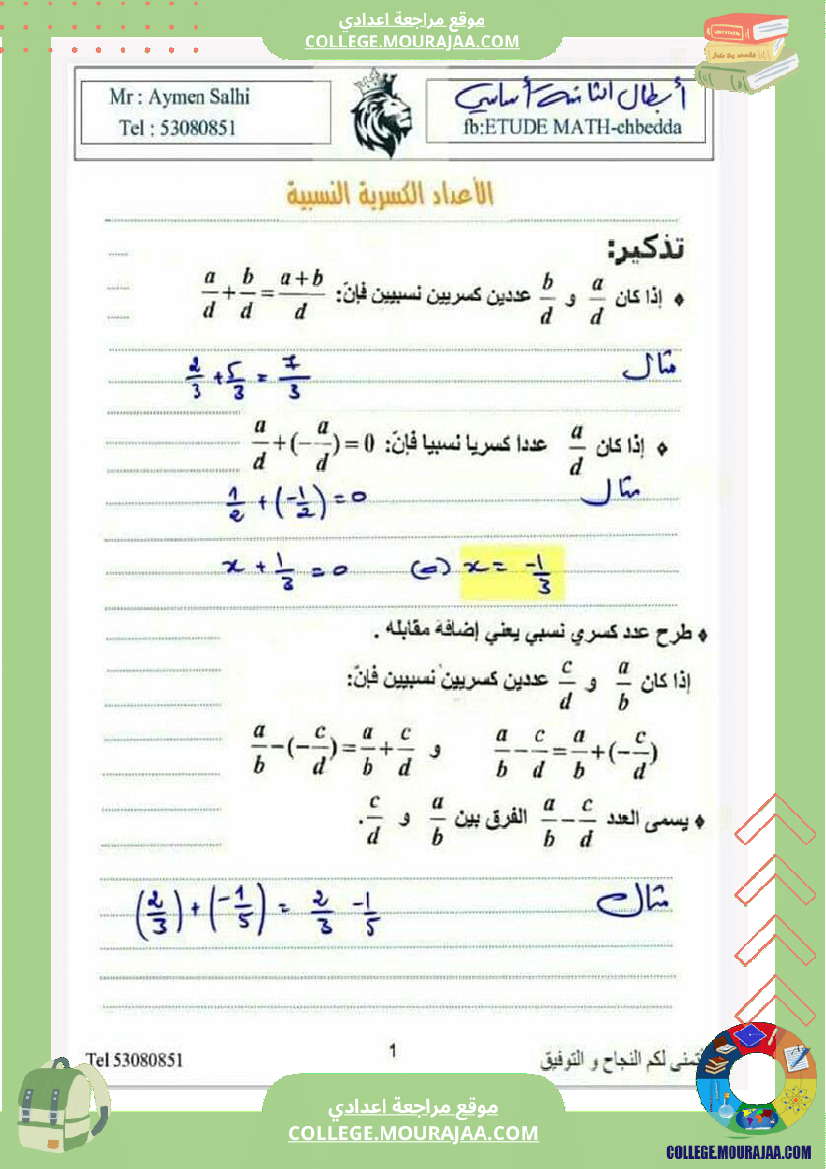 موقع مراجعة اعدادي
COLLEGE.MOURAJAA.COM
Mr : Aymen Salhi
Tel : 53080851
أبطال الثامنة أساسي
fb:ETUDE MATH-chbedda
الأعداد الكسرية النسبية
تذكير:
إذا كان a/d و b/d عددين كسريين نسبيين فإنّ: a/d + b/d = (a+b)/d
مثال
2/3 + 5/3 = 7/3
إذا كان a/d عددا كسريا نسبيا فإنّ: a/d + (-a/d) = 0
مثال
1/2 + (-1/2) = 0
x + 1/3 = 0 (=) x = -1/3
طرح عدد كسري نسبي يعني إضافة مقابله .
إذا كان a/b و c/d عددين كسريين نسبيين فإنّ:
a/b - c/d = a/b + (-c/d) و a/b - (-c/d) = a/b + c/d
يسمى العدد a/b - c/d الفرق بين a/b و c/d.
مثال
(2/3) + (-1/5) = 2/3 - 1/5
Tel 53080851
1
أتمنى لكم النجاح و التوفيق
موقع مراجعة اعدادي
COLLEGE.MOURAJAA.COM
COLLEGE.MOURAJAA.COM